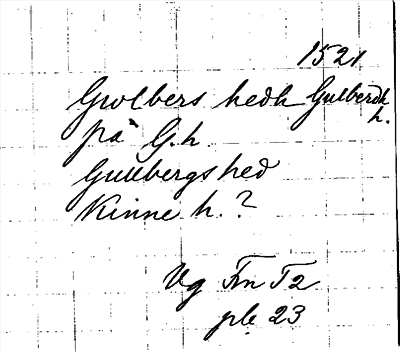 1521
Gwlbers hedh Gulberdh
h.
på G.h
Gullbergshed
Kinne h.?
Vg Fm T2
pb 23